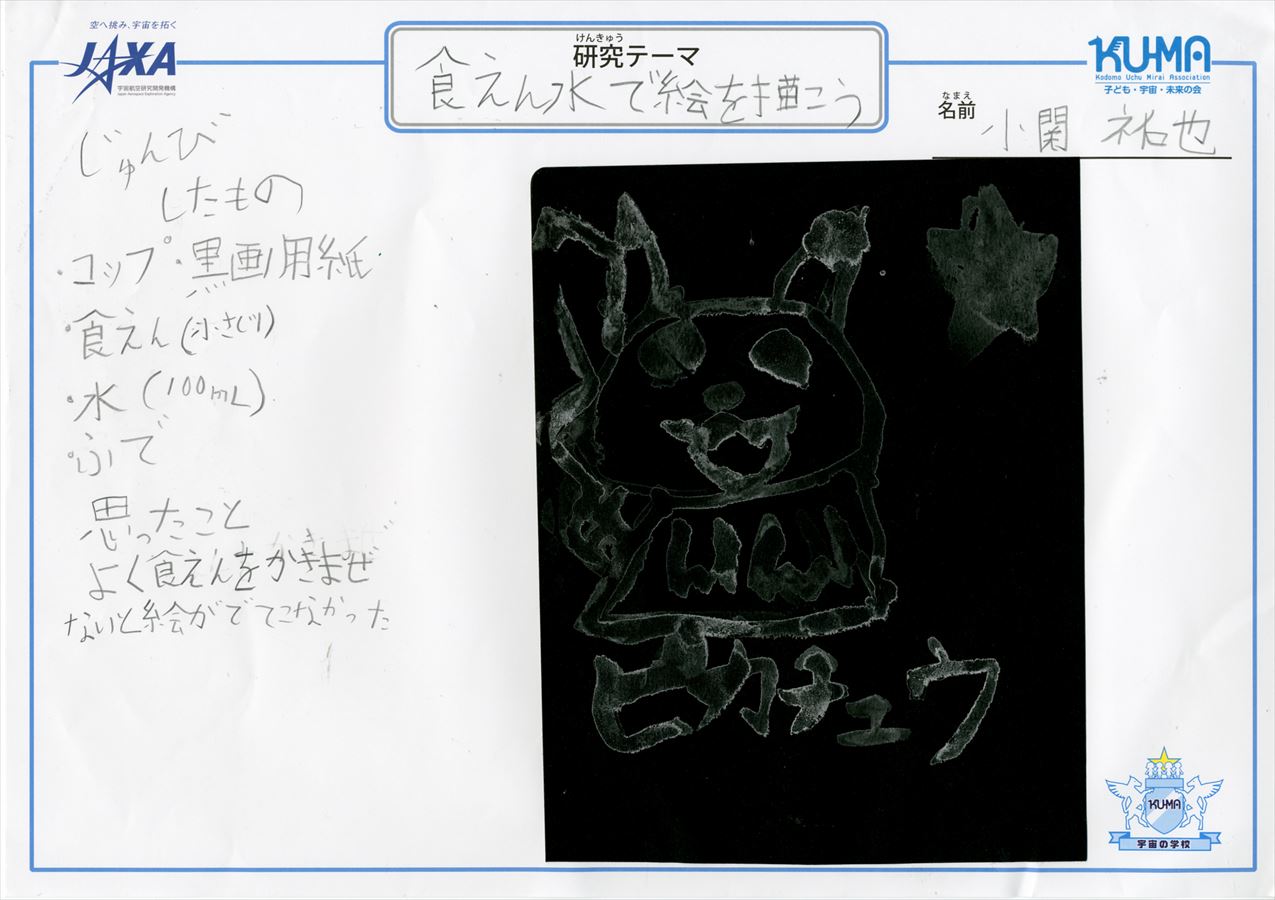 空へ挑み、宇宙を拓く
JAXA
宇宙航空研究開発機構
Japan Aerospace Exploration Agency
けんきゅう
研究テーマ
食えん水で絵を描こう
KU-MA
Kodomo Uchu Mirai Association
子ども・宇宙・未来の会
なまえ
名前
小関 祐也
じゅんび
したもの
・コップ ・黒画用紙
・食えん(小さじ1)
・水(100mL)
・ふで
思ったこと
よく食えんをかきまぜ
ないと絵がでてこなかった
ピカチュウ
KU-MA
宇宙の学校